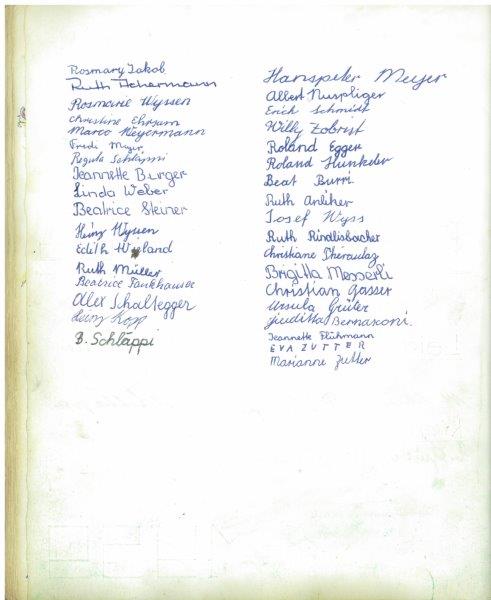 Rosmary Jakob
Ruth Achermann
Rosmarie Wyssen
Christine Ehrsam
Marco Weyermann
Fredi Meyer
Regula Schläppi
Jeannette Burger
Linda Weber
Beatrice Steiner
Heinz Wyssen
Edith Wyland
Ruth Müller
Beatrice Fankhauser
Alex Schaltegger
Heinz Kopp
B. Schläppi
Hanspeter Meyer
Albert Nuspliger
Erich Schmidt
Willy Zobrist
Roland Egger
Roland Hunkeler
Beat Burri
Ruth Anliker
Josef Wyss
Ruth Rindlisbacher
Christiane Théraulaz
Brigitta Messerli
Christian Gasser
Ursula Grüter
Juditta Bernasconi.
Jeannette Flühmann
EVA ZUTTER
Marianne Zutter